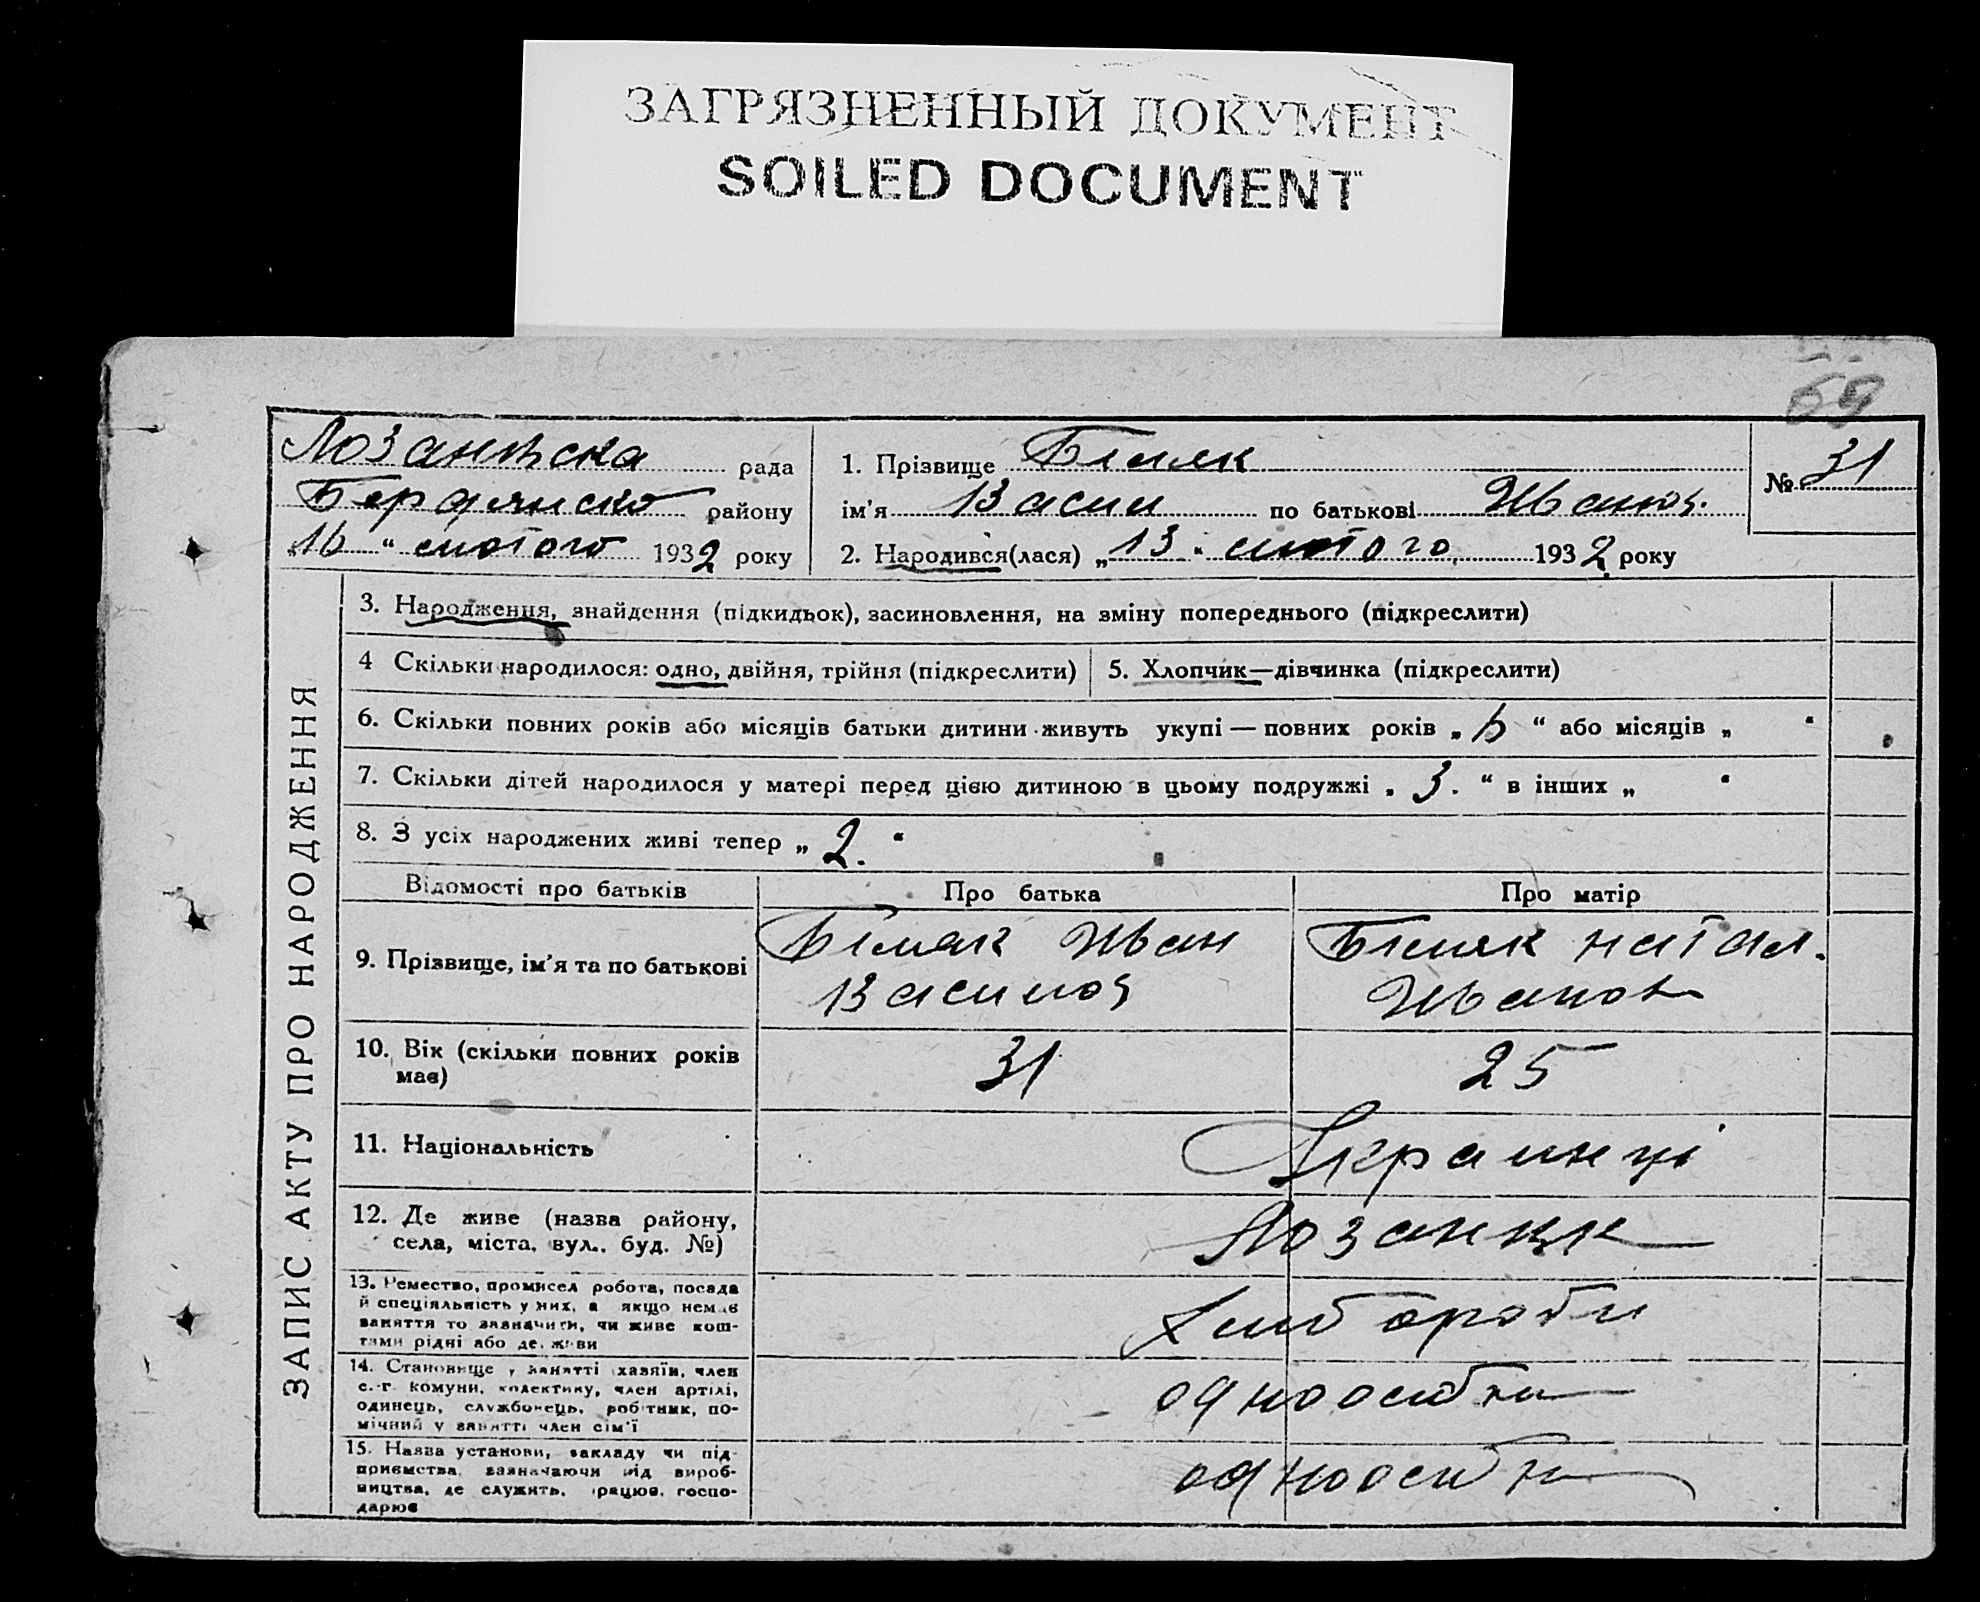 ЗАГРЯЗНЕННЫЙ ДОКУМЕНТ
SOILED DOCUMENT
69
Лозанівска рада
району
„16“ лютого 1932 року
1. Прізвище Біляк
ім'я Васил по батькові Иванов.
2. Народився(лася) „13“ лютого 1932 року
№ 31
ЗАПИС АКТУ ПРО НАРОДЖЕННЯ
3. Народження, знайдення (підкидьок), засиновлення, на зміну попереднього (підкреслити)
4 Скільки народилося: одно, двійня, трійня (підкреслити)
5. Хлопчик—дівчинка (підкреслити)
6. Скільки повних років або місяців батьки дитини живуть укупі — повних років „ “ або місяців „ “
7. Скільки дітей народилося у матері перед цією дитиною в цьому подружжі „3.“ в інших „ “
8. З усіх народжених живі тепер „2.“
Відомості про батьків
Про батька
Про матір
9. Прізвище, ім'я та по батькові
Біляк Иван
Василов
Біляк Натал.
Иванов
10. Вік (скільки повних років
має)
31
25
11. Національність
Украинці
12. Де живе (назва району,
села, міста, вул., буд. №)
Лозанки
13. Ремество, промисел робота, посада
й спеціяльність у них, а якщо немає
заняття то зазначити, чи живе кош-
тами рідні або держави
Хлібороби
14. Становище у занятті (хазяїн, член
с.-г. комуни, колективу, член артілі,
одинець, службовець, робітник, по-
мічний у занятті член сім'ї
одноосібни
15. Назва установи, закладу чи під-
приємства, зазначаючи від вироб-
ництва, де служить, працює, госпо-
дарює
одноосібн